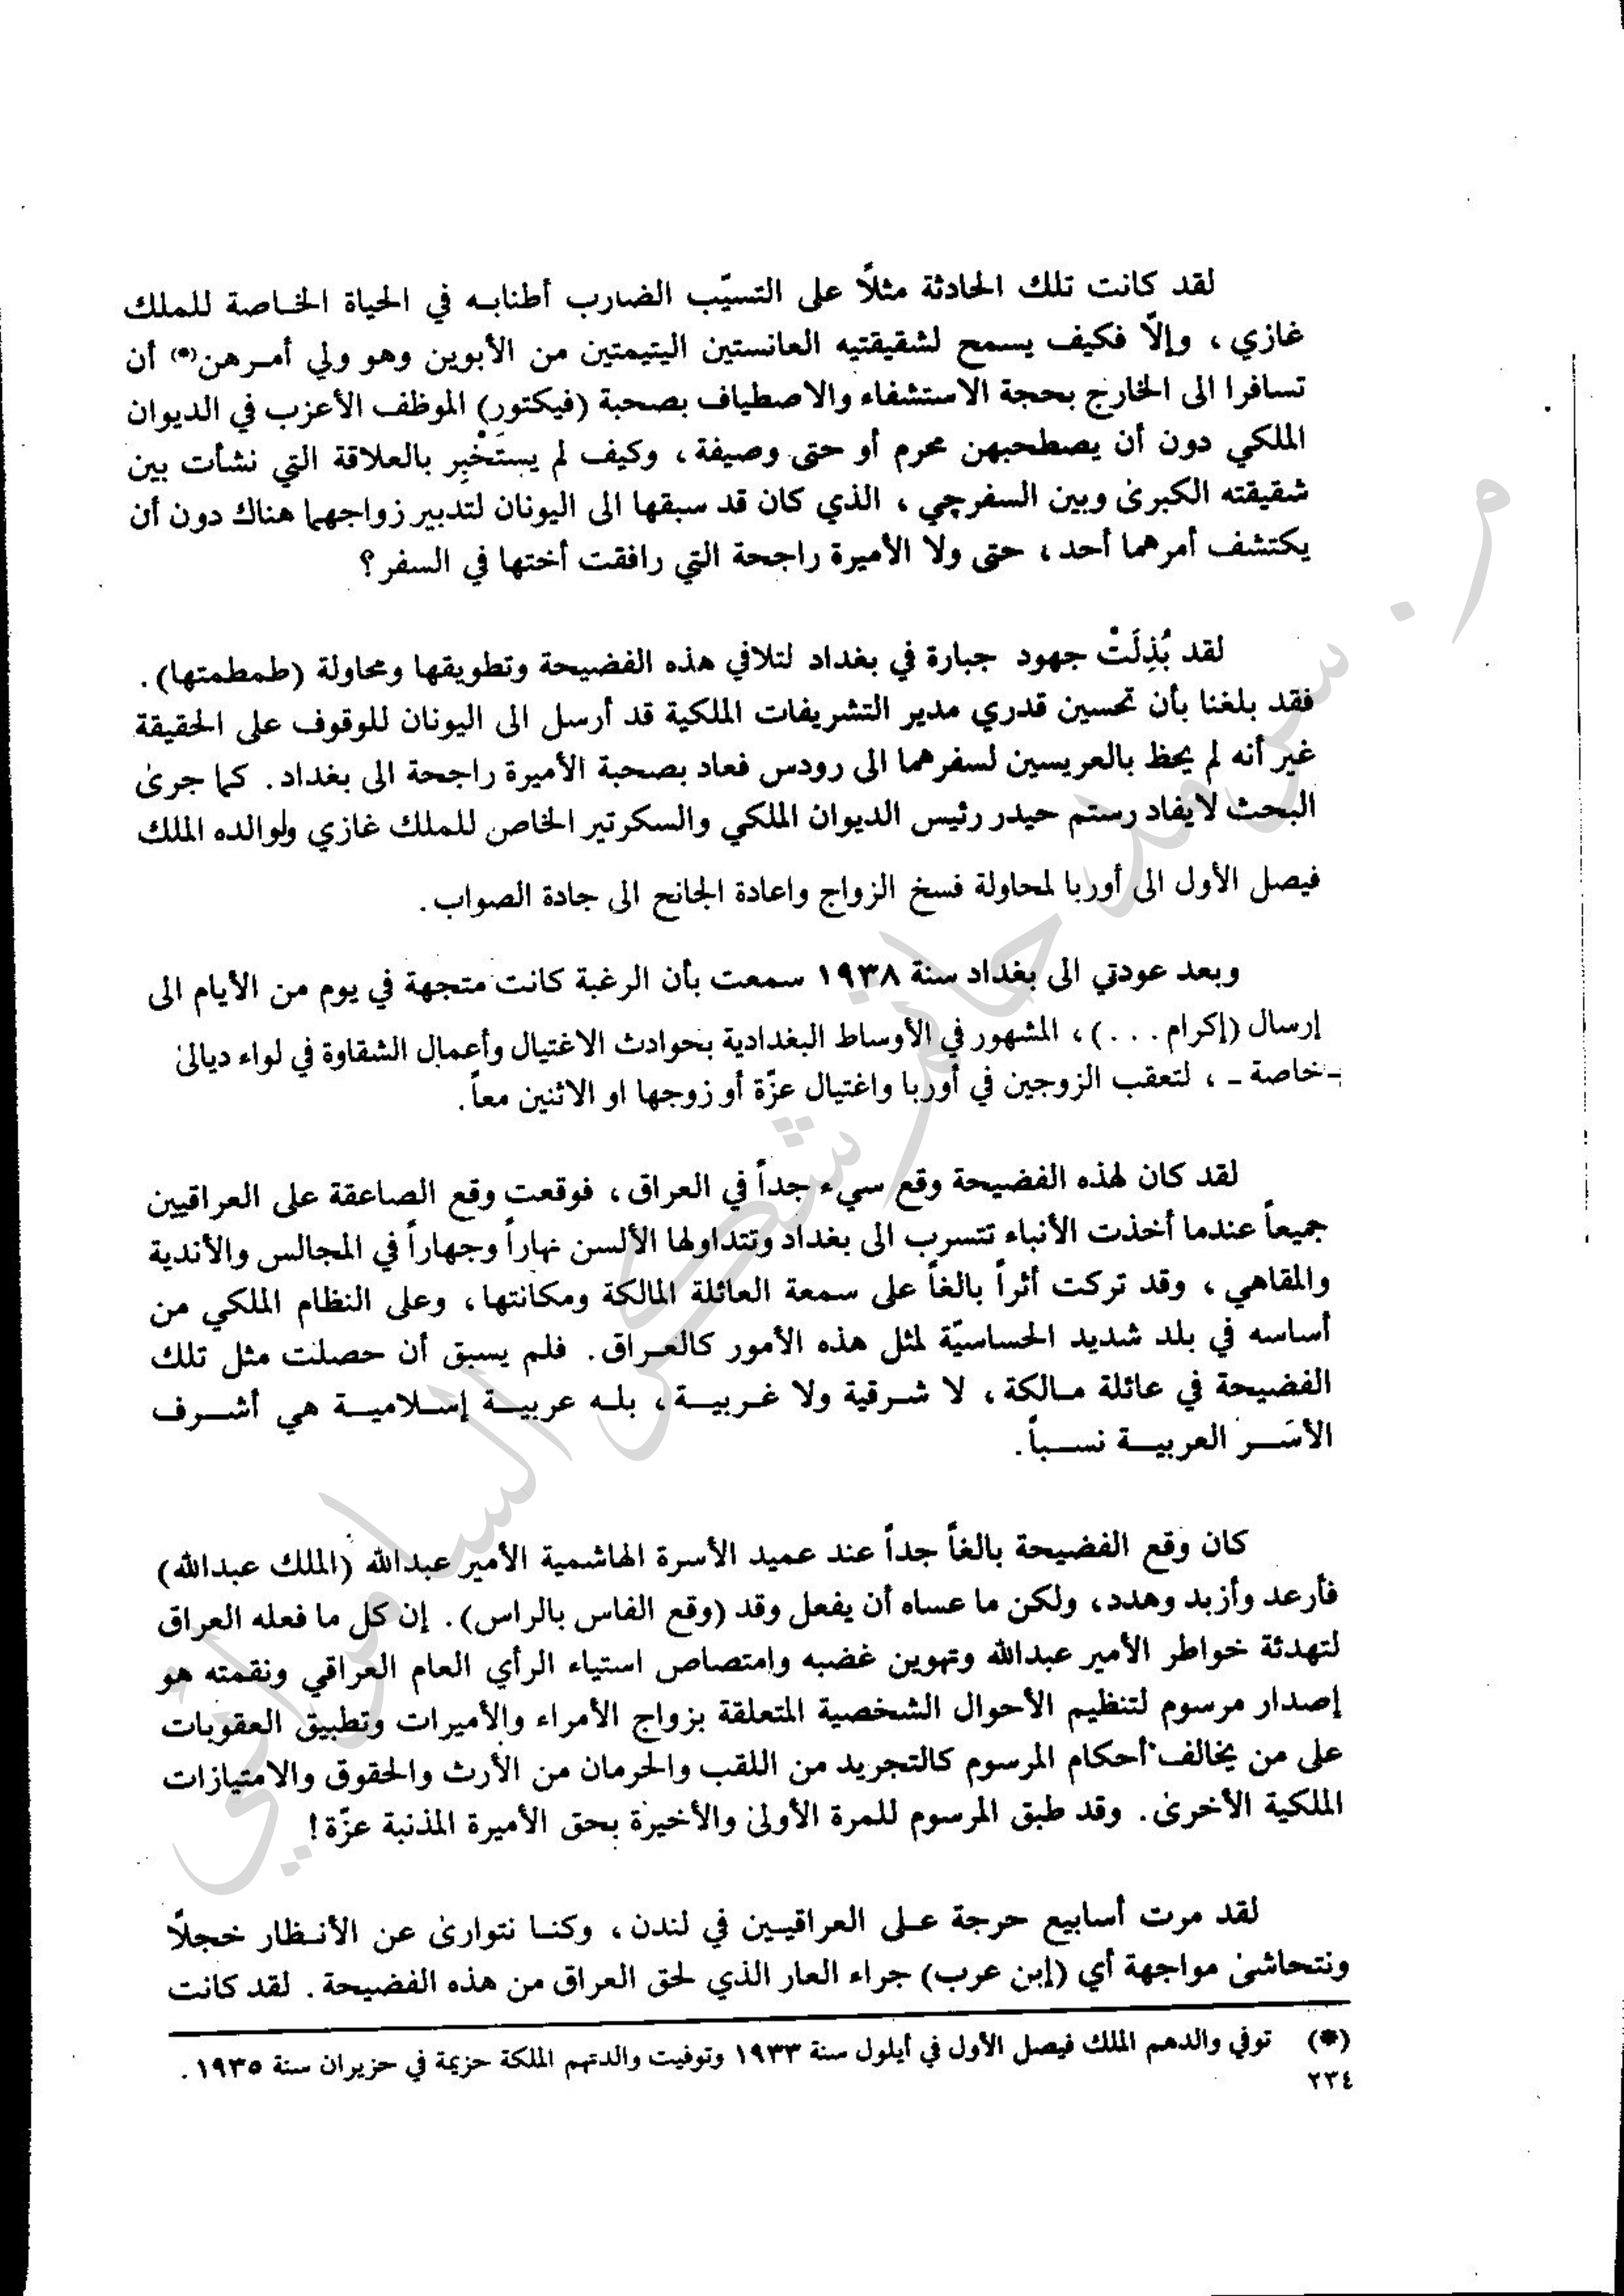 لقد كانت تلك الحادثة مثلاً على التسيّب الضارب أطنابه في الحياة الخاصة للملك
غازي ، وإلاّ فكيف يسمح لشقيقتيه العانستين اليتيمتين من الأبوين وهو ولي أمرهن(*) أن
تسافرا الى الخارج بحجة الاستشفاء والاصطياف بصحبة (فيكتور) الموظف الأعزب في الديوان
الملكي دون أن يصطحبهن محرم أو حتى وصيفة ، وكيف لم يستَخْبِر بالعلاقة التي نشأت بين
شقيقته الكبرى وبين السفرجي ، الذي كان قد سبقها الى اليونان لتدبير زواجهما هناك دون أن
يكتشف أمرهما أحد ، حتى ولا الأميرة راجحة التي رافقت أختها في السفر ؟
لقد بُذِلَتْ جهود جبارة في بغداد لتلافي هذه الفضيحة وتطويقها ومحاولة (طمطمتها) .
فقد بلغنا بأن تحسين قدري مدير التشريفات الملكية قد أرسل الى اليونان للوقوف على الحقيقة
غير أنه لم يحظ بالعريسين لسفرهما الى رودس فعاد بصحبة الأميرة راجحة الى بغداد . كما جرى
البحث لايفاد رستم حيدر رئيس الديوان الملكي والسكرتير الخاص للملك غازي ولوالده الملك
فيصل الأول الى أوربا لمحاولة فسخ الزواج واعادة الجانح الى جادة الصواب .
وبعد عودتي الى بغداد سنة ١٩٣٨ سمعت بأن الرغبة كانت متجهة في يوم من الأيام الى
إرسال (إكرام . . .) ، المشهور في الأوساط البغدادية بحوادث الاغتيال وأعمال الشقاوة في لواء ديالى
ـ خاصة ـ ، لتعقب الزوجين في أوربا واغتيال عزّة أو زوجها او الاثنين معاً .
لقد كان لهذه الفضيحة وقع سيء جداً في العراق ، فوقعت وقع الصاعقة على العراقيين
جميعاً عندما أخذت الأنباء تتسرب الى بغداد وتتداولها الألسن نهاراً وجهاراً في المجالس والأندية
والمقاهي ، وقد تركت أثراً بالغاً على سمعة العائلة المالكة ومكانتها ، وعلى النظام الملكي من
أساسه في بلد شديد الحساسيّة لمثل هذه الأمور كالعراق . فلم يسبق أن حصلت مثل تلك
الفضيحة في عائلة مالكة ، لا شرقية ولا غربية ، بله عربية إسلامية هي أشرف
الأسَر العربية نسباً .
كان وقع الفضيحة بالغاً جداً عند عميد الأسرة الهاشمية الأمير عبدالله (الملك عبدالله)
فأرعد وأزبد وهدد ، ولكن ما عساه أن يفعل وقد (وقع الفاس بالراس) . إن كل ما فعله العراق
لتهدئة خواطر الأمير عبدالله وتهوين غضبه وامتصاص استياء الرأي العام العراقي ونقمته هو
إصدار مرسوم لتنظيم الأحوال الشخصية المتعلقة بزواج الأمراء والأميرات وتطبيق العقوبات
على من يخالف أحكام المرسوم كالتجريد من اللقب والحرمان من الأرث والحقوق والامتيازات
الملكية الأخرى . وقد طبق المرسوم للمرة الأولى والأخيرة بحق الأميرة المذنبة عزّة !
لقد مرت أسابيع حرجة على العراقيين في لندن ، وكنا نتوارى عن الأنظار خجلاً
ونتحاشى مواجهة أي (إبن عرب) جراء العار الذي لحق العراق من هذه الفضيحة . لقد كانت
(*) توفي والدهم الملك فيصل الأول في أيلول سنة ١٩٣٣ وتوفيت والدتهم الملكة حزيمة في حزيران سنة ١٩٣٥ .
٢٣٤
م. سرمد حاتم شكر السامرائي